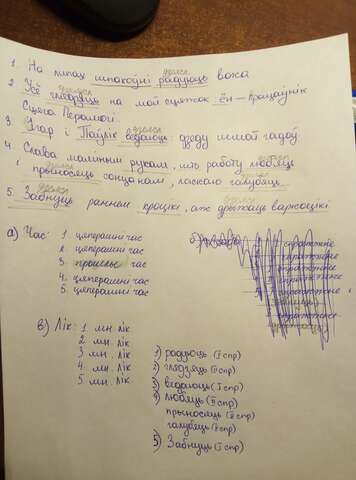 1. На ліпах шпакоўні радуюць вока
2. Усё глядзяць на мой сцяжок ён - Крацаўнік
Сцяга Перамогі.
3. Ігар і Паўлік ведаюць: дзеду многа гадоў.
4. Слава малінім рукам, што работу любяць
і прыносяць сонца нам, ласкаю галубяць.
5. Забнуць раннем крокі, аж дрыжаць
а) Час: 1 цяперашні час
2. цяперашні час
3. час
4. цяперашні час
5. цяперашні час
в) Лік: 1 мн лік
2 мн. лік
3 мн лік
4 мн. лік
5 мн. лік
1) радуюць (I спр)
2) глядзяць (II спр)
3) ведаюць (I спр)
4) любяць (II спр)
прыносяць (II спр)
галубяць (II спр)
5) Забнуць (I спр)